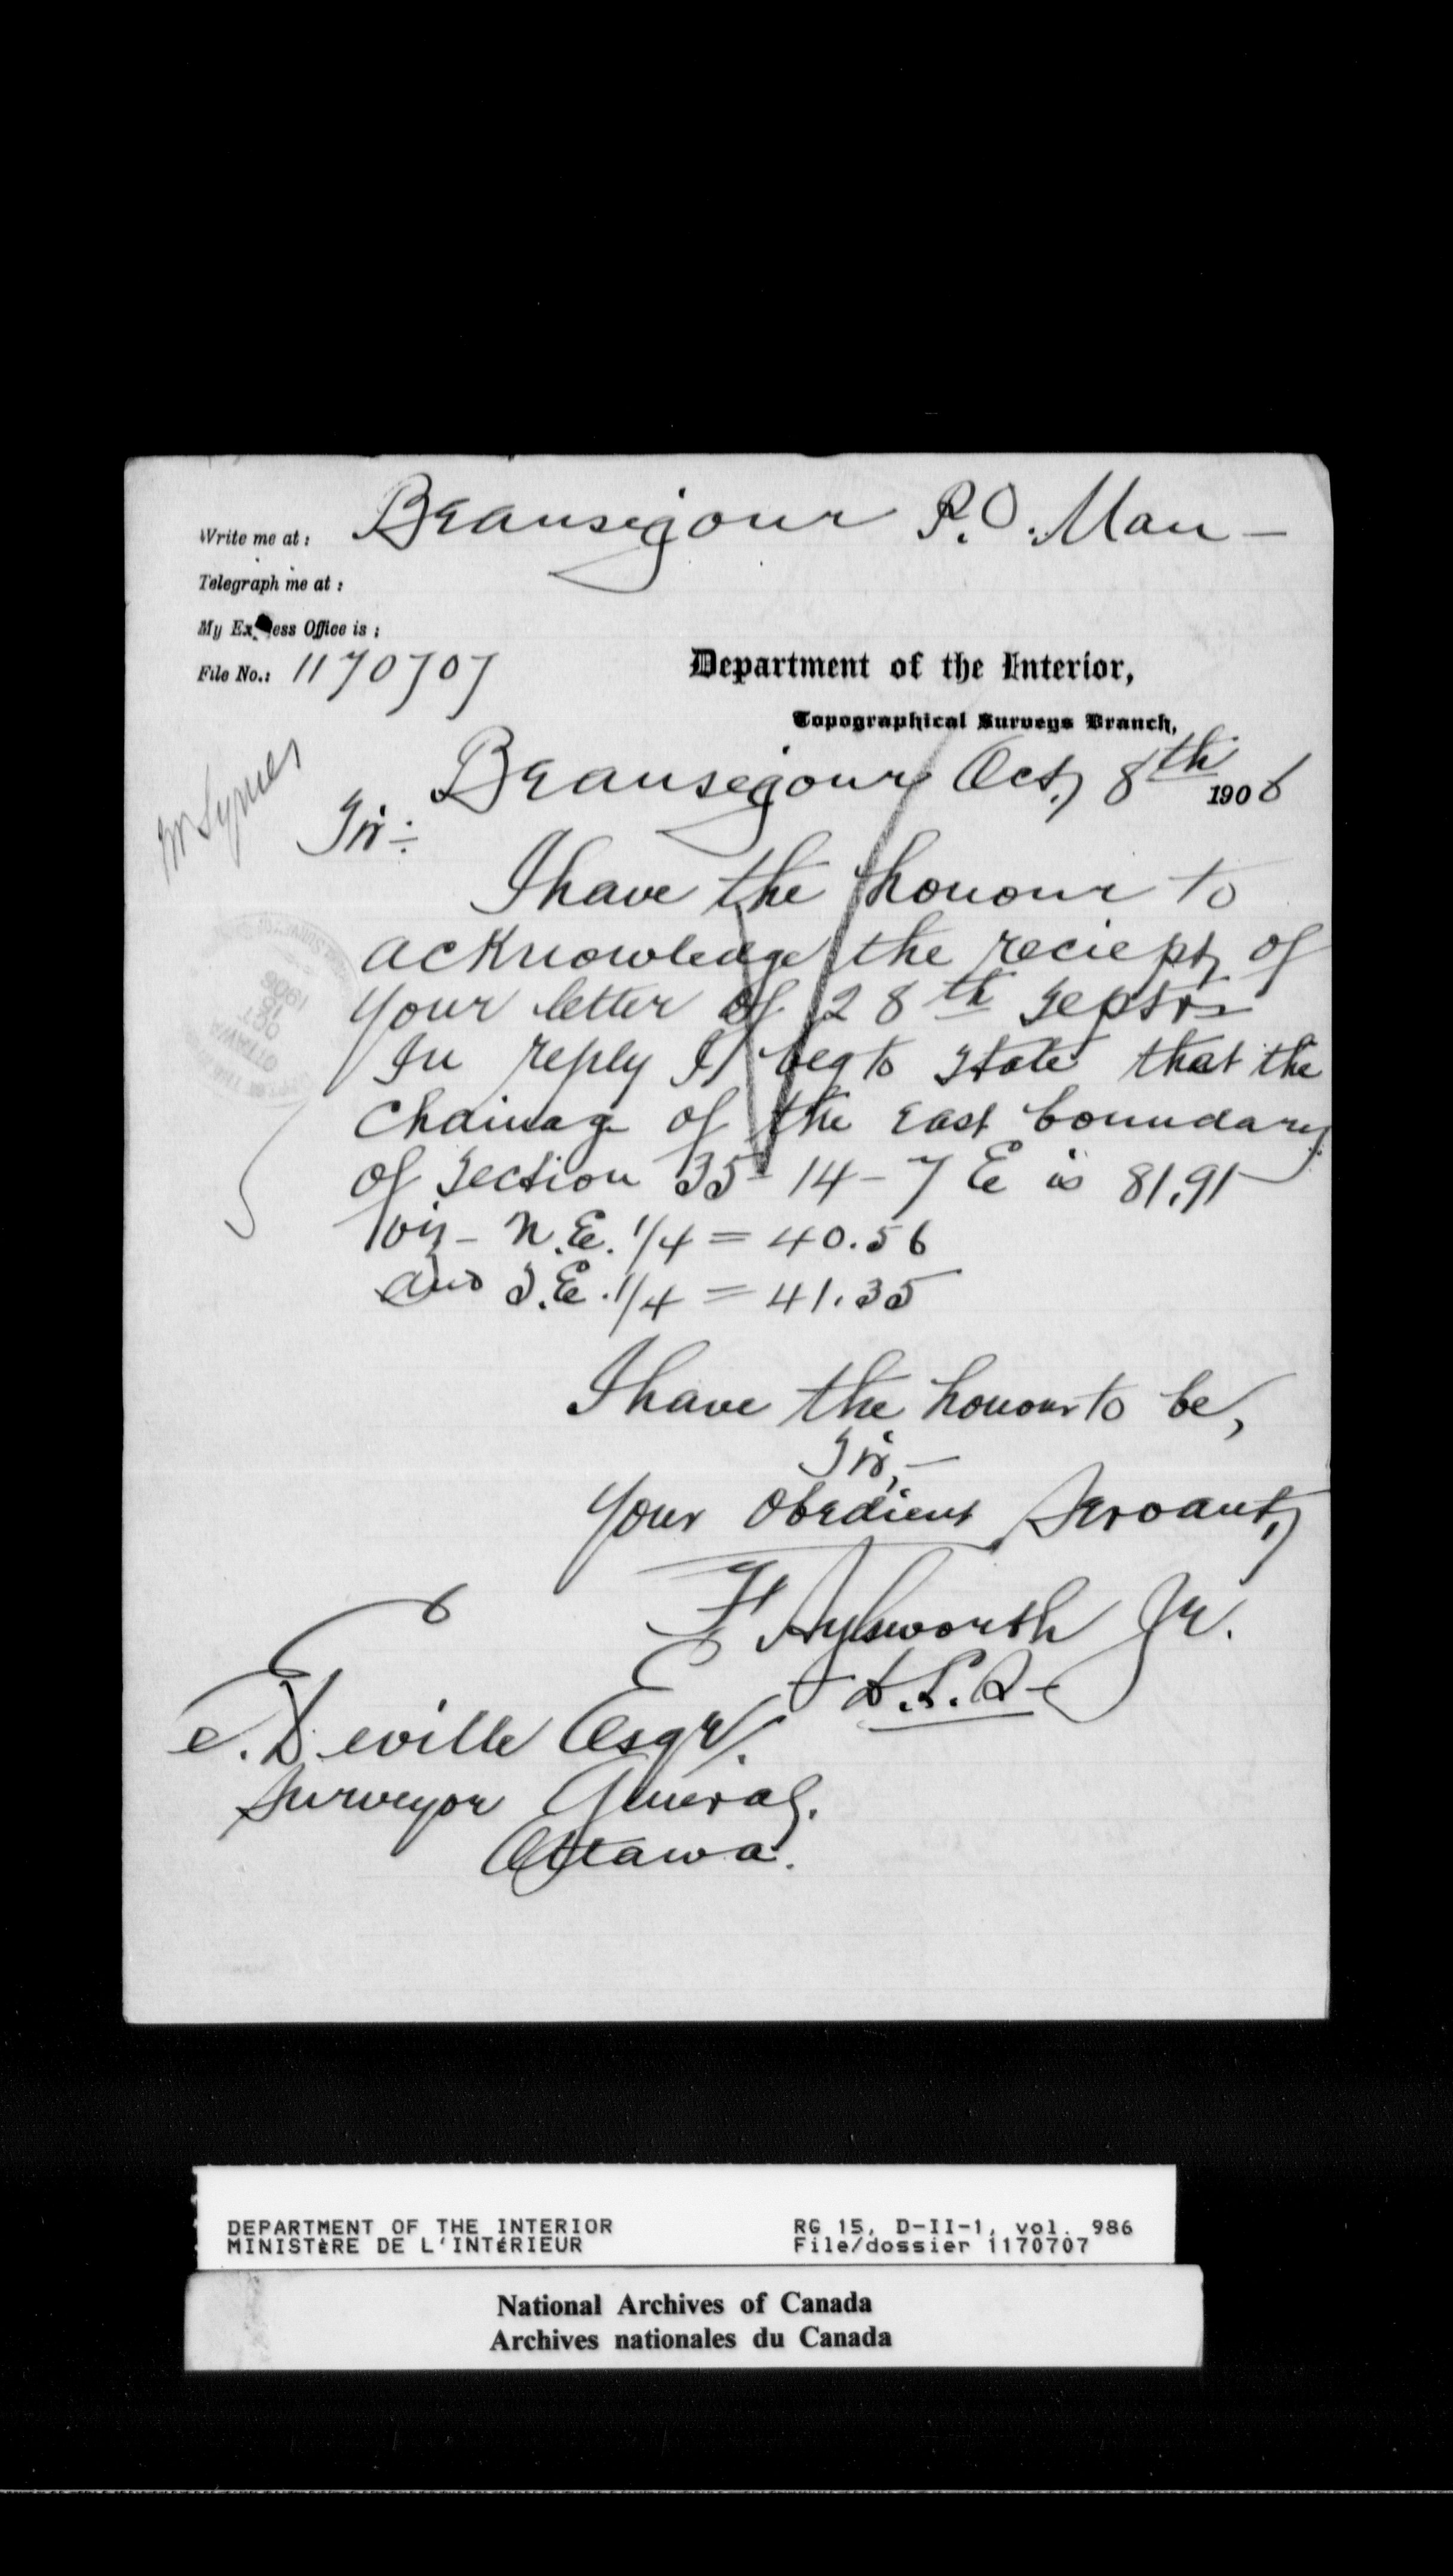 Write me at: Beausejour P.O. Man –
Telegraph me at:
My Express Office is:
File No.: 1170707
Department of the Interior,
Topographical Surveys Branch,
Beausejour, Oct, 8th 1906
Mr Symes
Sir:-
I have the honour to
acknowledge the reciept, of
your letter of 28th Septr
In reply I beg to state that the
chainage of the east boundary
of Section 35 - 14 - 7 E is 81.91
viz - N.E. 1/4 = 40.56
and S.E. 1/4 = 41.35
I have the honour to be,
Sir, –
Your obedient Servant,
F Aylsworth Jr.
D.L.S.
E. Deville Esqr.
Surveyor General.
Ottawa.
OTTAWA
OCT
1906
DEPARTMENT OF THE INTERIOR RG 15, D-II-1, vol. 986
MINISTÈRE DE L'INTÉRIEUR File/dossier 1170707
National Archives of Canada
Archives nationales du Canada